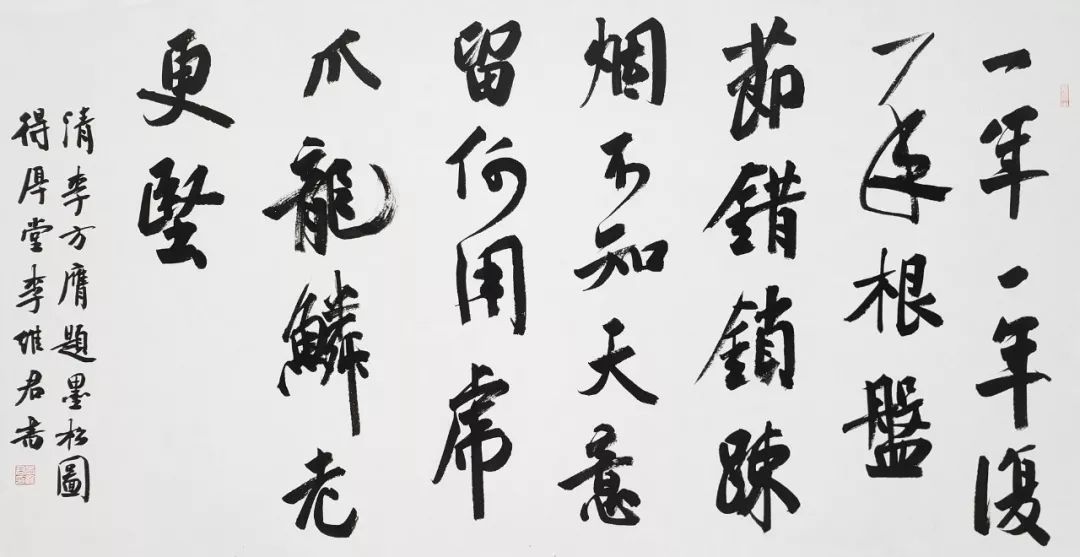 一年一年復
一年根盤
節錯鎖踈
烟不知天意
留何用虎
爪龍鱗老
更堅
清李方膺題墨松圖
得厚堂李維君書